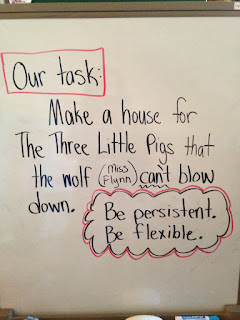 Our task:
Make a house for
The Three Little Pigs that
the wolf (Miss Flynn) can't blow
down.
Be persistent.
Be flexible.